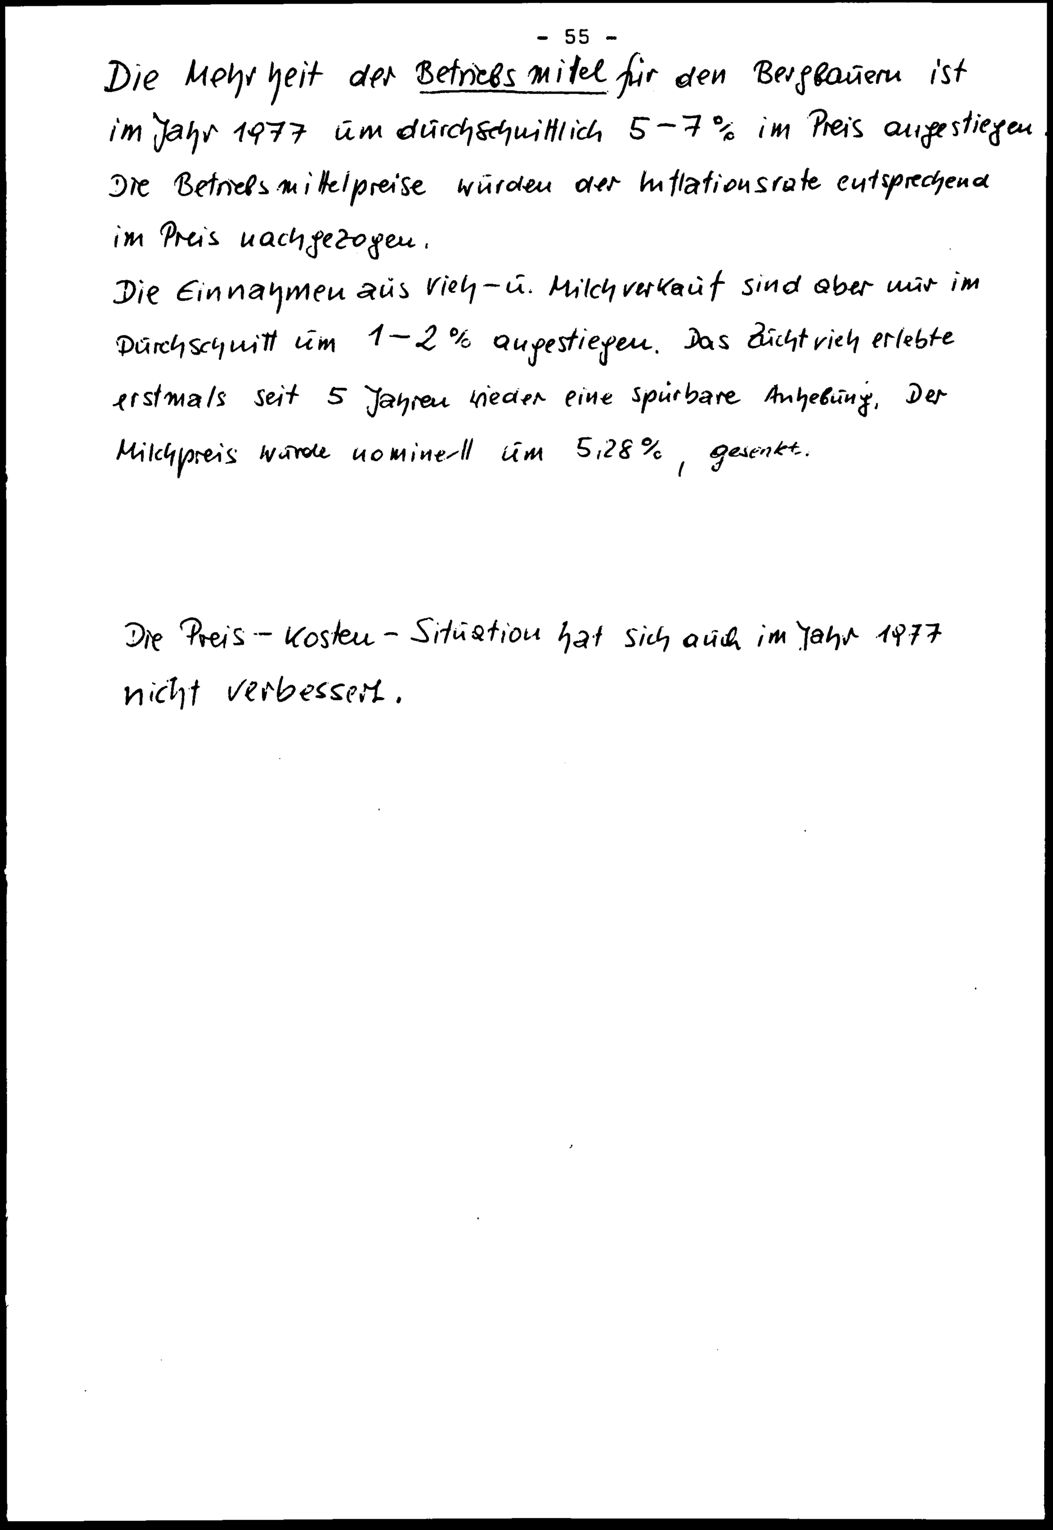 - 55 -
Die Mehrheit der Betriebsmitel für den Bergbauern ist
im Jahr 1977 um durchschnittlich 5-7% im Preis angestiegen.
Die Betriebsmittelpreise wurden der Inflationsrate entsprechend
im Preis nachgezogen.
Die Einnahmen aus Vieh- u. Milchverkauf sind aber nur im
Durchschnitt um 1-2% angestiegen. Das Zuchtvieh erlebte
erstmals seit 5 Jahren wieder eine spürbare Anhebung. Der
Milchpreis wurde nominell um 5,28%, gesenkt.
Die Preis-Kosten-Situation hat sich auch im Jahr 1977
nicht verbessert.